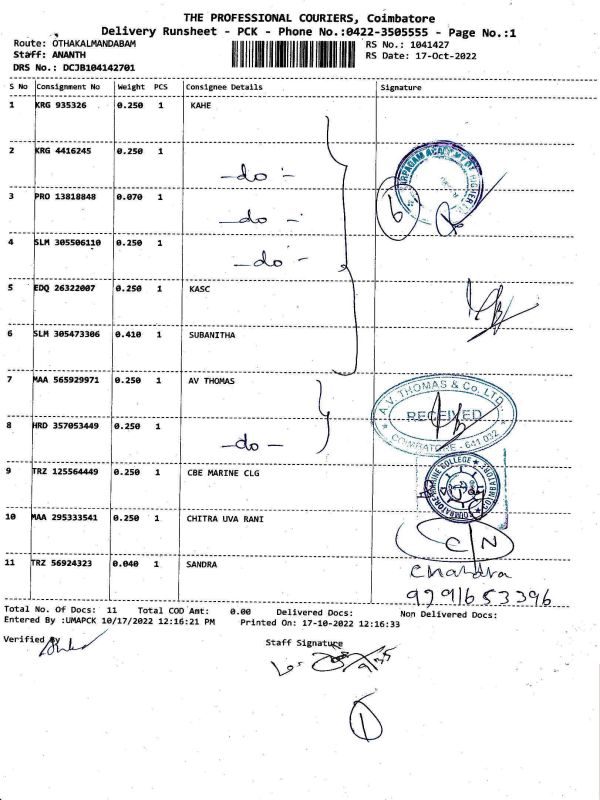 THE PROFESSIONAL COURIERS, Coimbatore
Delivery Runsheet - PCK - Phone No.:0422-3505555 - Page No.:1
Route: OTHAKALMANDABAM RS No.: 1041427
Staff: ANANTH RS Date: 17-Oct-2022
DRS No.: DCJB104142701
S No Consignment No Weight PCS Consignee Details Signature
1 KRG 935326 0.250 1 KAHE
2 KRG 4416245 0.250 1 -do-
3 PRO 13818848 0.070 1 -do-
4 SLM 305506110 0.250 1 -do-
5 EDQ 26322007 0.250 1 KASC
6 SLM 305473306 0.410 1 SUBANITHA
7 MAA 565929971 0.250 1 AV THOMAS
A.V. THOMAS & Co. LTD.
RECEIVED
COIMBATORE - 641 032
8 HRD 357053449 0.250 1 -do-
9 TRZ 125564449 0.250 1 CBE MARINE CLG
10 MAA 295333541 0.250 1 CHITRA UVA RANI
C/N
11 TRZ 56924323 0.040 1 SANDRA
Chandra
9791653396
Total No. Of Docs: 11 Total COD Amt: 0.00 Delivered Docs: Non Delivered Docs:
Entered By :UMAPCK 10/17/2022 12:16:21 PM Printed On: 17-10-2022 12:16:33
Verified By Staff Signature
1